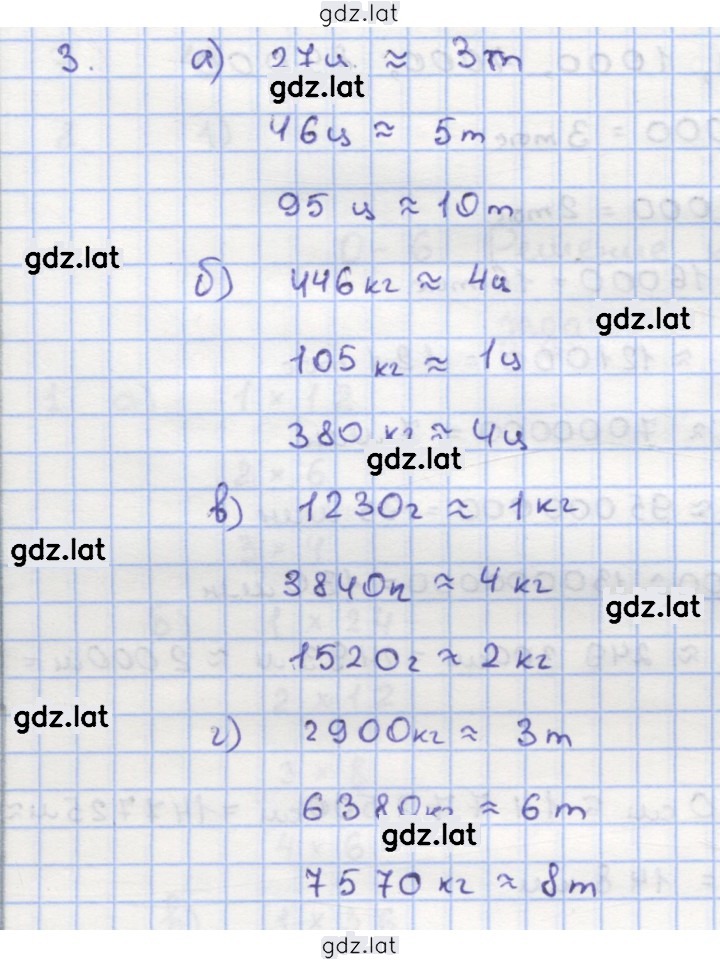 gdz.lat
3. а) 27ц ≈ 3т
gdz.lat
46ц ≈ 5т
95 ц ≈ 10т
gdz.lat
б) 446кг ≈ 4ц
gdz.lat
105 кг ≈ 1ц
380 кг ≈ 4ц
gdz.lat
в) 1230г ≈ 1кг
gdz.lat
3840г ≈ 4кг
gdz.lat
1520г ≈ 2кг
gdz.lat
г) 2900кг ≈ 3т
6380кг ≈ 6т
gdz.lat
7570кг ≈ 8т
gdz.lat